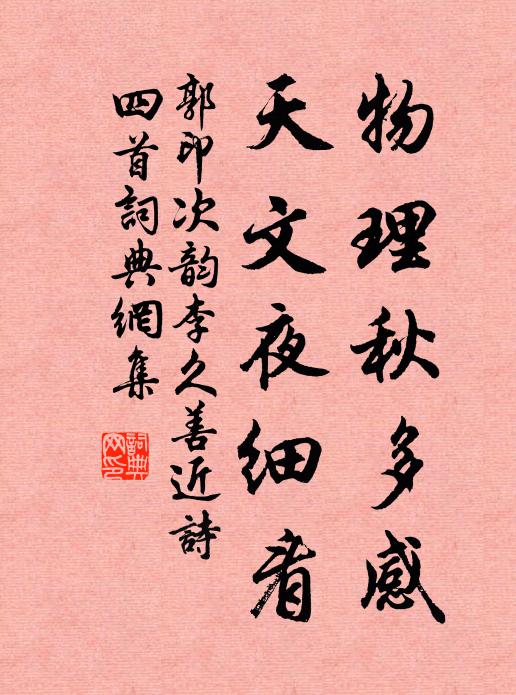 物理秋多感
天文夜細看
郭印次韵李久善近詩
四首詞典網集
詞典
网印